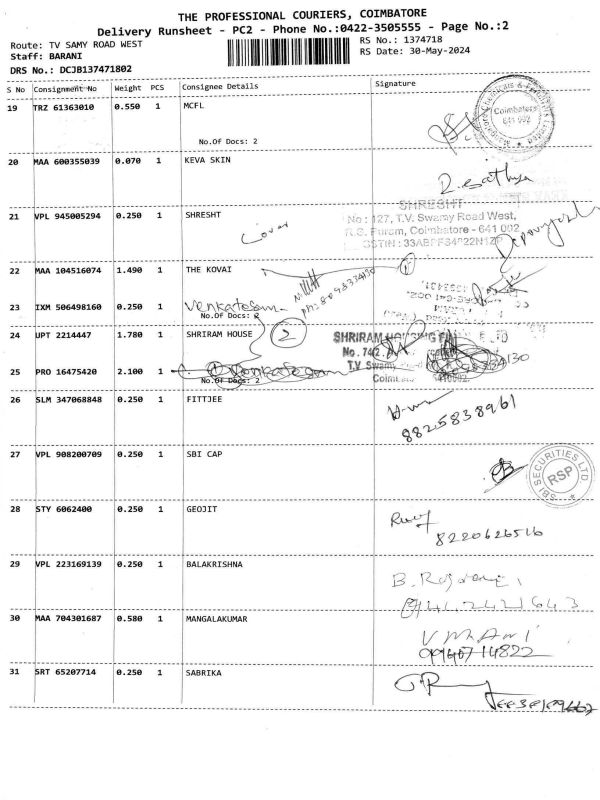 THE PROFESSIONAL COURIERS, COIMBATORE
Delivery Runsheet - PC2 - Phone No.:0422-3505555 - Page No.:2
Route: TV SAMY ROAD WEST
RS No.: 1374718
Staff: BARANI
RS Date: 30-May-2024
DRS No.: DCJB137471802
S No Consignment No Weight PCS Consignee Details Signature
19 TRZ 61363010 0.550 1 MCFL
No.Of Docs: 2
Coimbatore
641 002
20 MAA 600355039 0.070 1 KEVA SKIN
R. Sathya
21 VPL 945005294 0.250 1 SHRESHT
SHRESHT
No : 127, T.V. Swamy Road West,
R.S. Puram, Coimbatore - 641 002
Covai
22 MAA 104516074 1.490 1 THE KOVAI
23 IXM 506498160 0.250 1 Venkatesan
No.Of Docs: 2
24 UPT 2214447 1.780 1 SHRIRAM HOUSE
2
SHRIRAM HOUSING
No. 74/2
T.V. Swamy
25 PRO 16475420 2.100 1 Venkatesan
No.Of Docs: 2
26 SLM 347068848 0.250 1 FITTJEE
8825838961
27 VPL 908200709 0.250 1 SBI CAP
SBI SECURITIES LTD
RSP
28 STY 6062400 0.250 1 GEOJIT
8220626516
29 VPL 223169139 0.250 1 BALAKRISHNA
30 MAA 704301687 0.580 1 MANGALAKUMAR
V Mhani
09940714822
31 SRT 65207714 0.250 1 SABRIKA